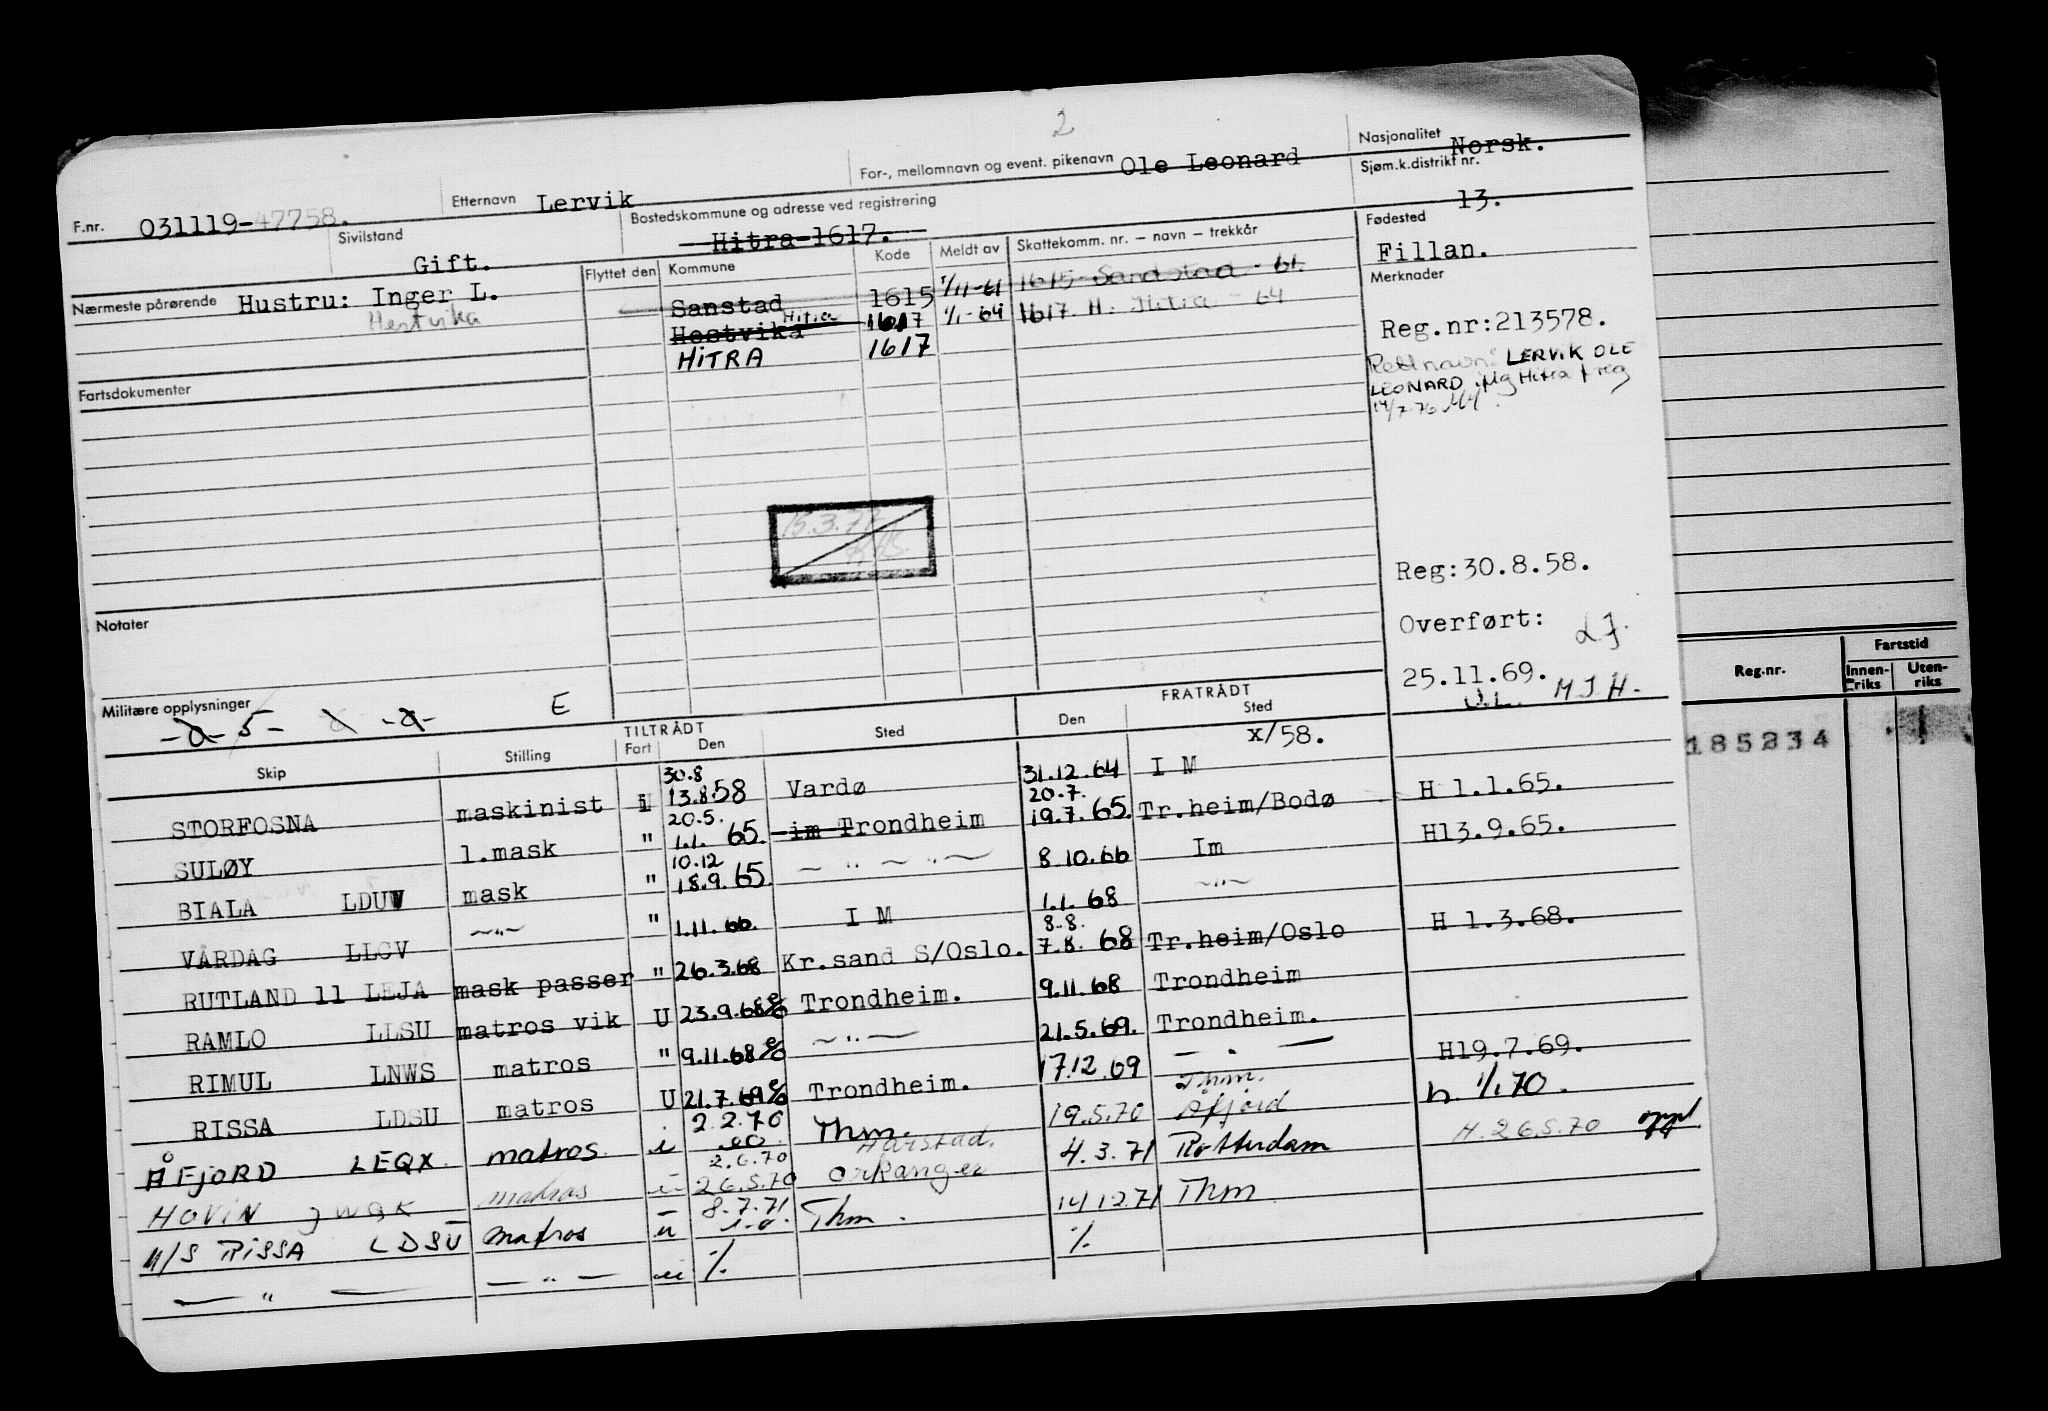 2
F.nr. 031119-47758. Etternavn Lervik For-, mellomnavn og event. pikenavn Ole Leonard Nasjonalitet Norsk.
Sivilstand Gift. Bostedskommune og adresse ved registrering Hitra-1617. Sjøm.k.distrikt nr. 13.
Nærmeste pårørende Hustru: Inger L.
Hestvika
Flyttet den Kommune Kode Meldt av Skattekomm. nr. – navn – trekkår
Sanstad 1615 1/11-61 1615 Sandstad - 61.
Hestvika Hitra 1617 1/1-64 1617 H. Hitra - 64
HITRA 1617
Fødested
Fillan.
Merknader
Reg.nr:213578.
Rett navn: LERVIK OLE
LEONARD iflg Hitra f reg
14/7-76
Fartsdokumenter
15.3.72
Reg:30.8.58.
Overført:
25.11.69.
M J H.
Notater
Militære opplysninger
E
TILTRÅDT FRATRÅDT
Skip Stilling Fart Den Sted Den Sted
x/58.
STORFOSNA maskinist i 30.8 13.8.58 Vardø 31.12.64 I M
SULØY 1.mask " 20.5. 1.1. 65. im Trondheim 20.7. 19.7. 65. Tr.heim/Bodø H 1.1.65.
BIALA LDUV mask " 10.12 18.9. 65. — " — " — 8 10.66 Im H13.9.65.
VÅRDAG LLGV —"— " 1.11. 66. I M 1.1. 68 —"—
RUTLAND 11 LEJA mask passer " 26.3.68 Kr.sand S/Oslo. 8.8. 7.8. 68 Tr.heim/Oslo H 1.3.68.
RAMLO LLSU matros vik U 23.9.68 % Trondheim. 9.11.68 Trondheim
RIMUL LNWS matros " 9.11.68 % — " — 21.5.69. Trondheim.
RISSA LDSU matros U 21.7.69 % Trondheim. 17.12.69 — " — H19.7.69.
ÅFJORD LEQX matros i 2.2.70 Thm. 19.5.70 Thm. Åfjord h. 1/1.70.
HOVIN JWGK matros u 2.6.70 26.5.70 Harstad. Orkanger 4.3.71 Rotterdam H. 26.5.70
M/S RISSA LDSU matros u 8.7.71 Thm. 14 12.71 Thm
— " — — " — u % %
Reg.nr. Fartstid
Innen-riks Uten-riks
185234